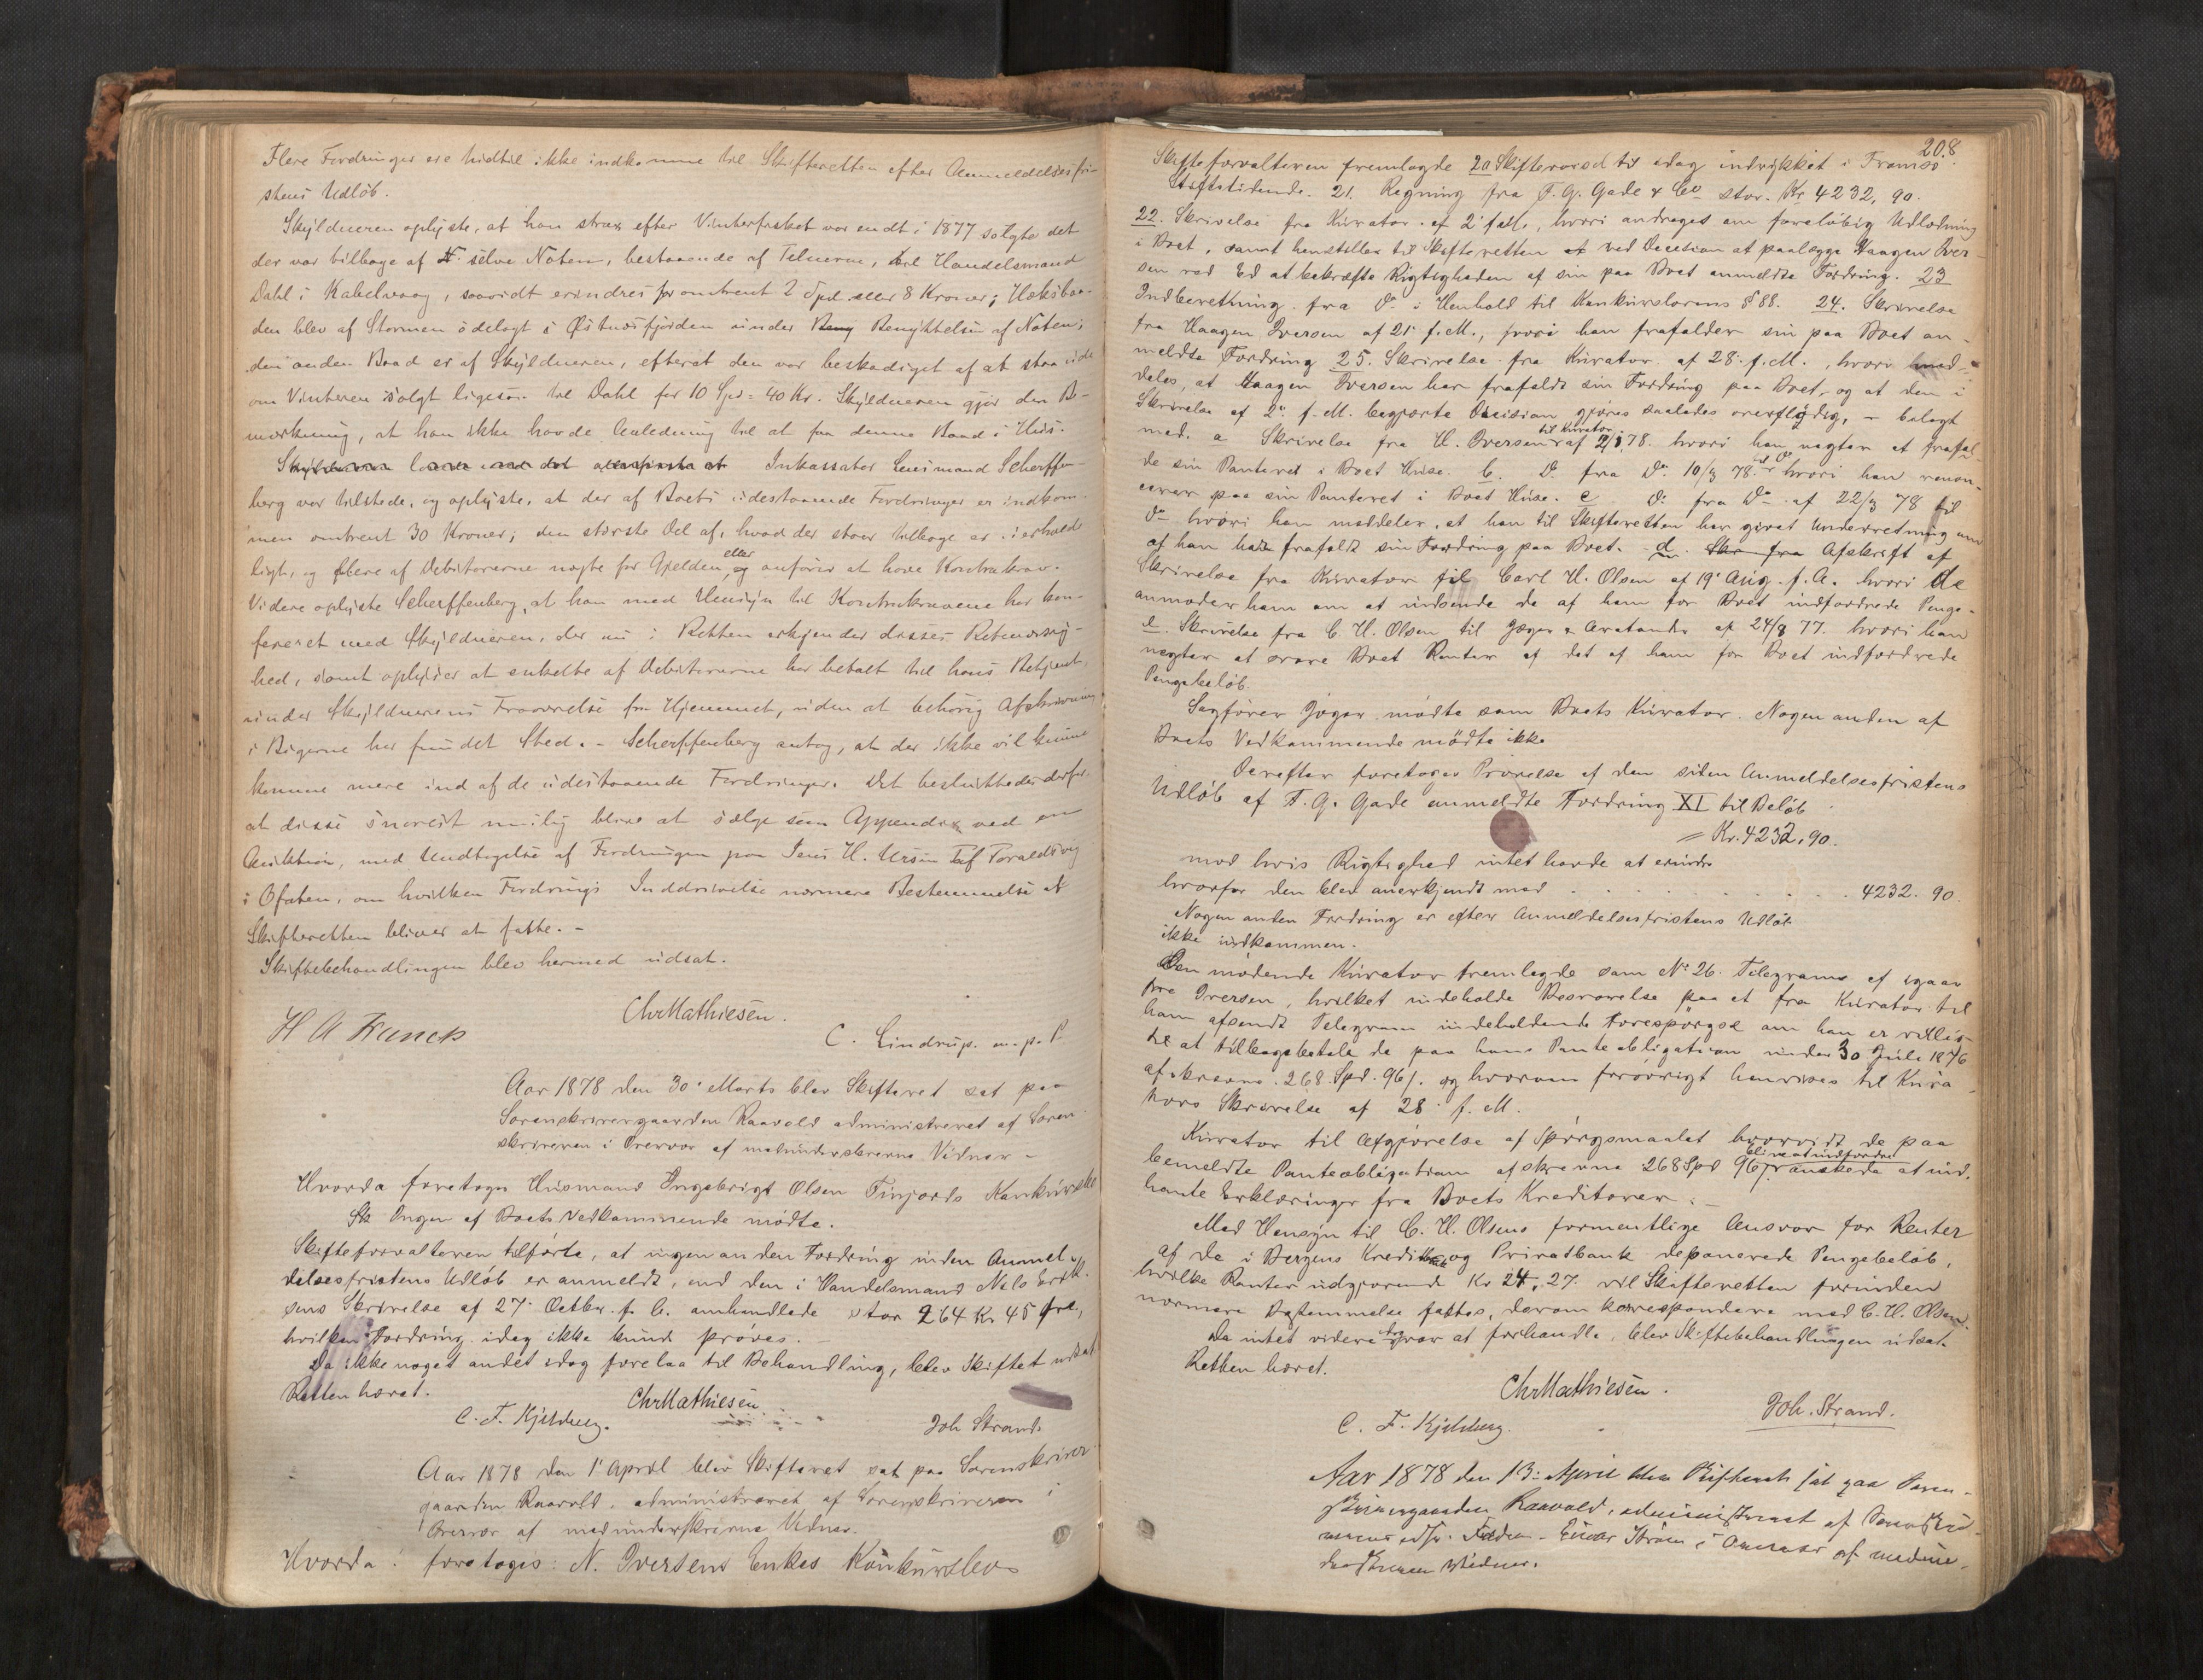 Flere Fordringer ere hidtil ikke indkomne til Skifteretten efter Anmeldelsesfri-
stens Udløb.
Skyldneren oplyste, at han strax efter Vinterfisket var endt i 1877 solgte det
der var tilbage af selve Noten, bestaaende af Telnerne, til Handelsmand
Dahl i Kabelvaag, saavidt erindres for omtrent 2 Spd eller 8 Kroner;
den blev af Stormen ödelagt i Östnæsfjorden under Benyttelsen af Noten;
den anden Baad er af Skyldneren, efterat den var beskadiget af at staa ude
om Vinteren solgt ligesaa til Dahl for 10 Spd = 40 Kr. Skyldneren gjör den Be-
mærkning, at han ikke havde Anledning til at faa denne Baad i Hus.
Inkassator Lensmand Scherffen-
berg var tilstede, og oplyste, at der af Boets udestaaende Fordringer er indkom-
men omtrent 30 Kroner; den störste Del af, hvad der staar tilbage er uerhold-
ligt, og flere af Debitorerne negte for Gjelden, eller anförer at have Kontrakrav.
Videre oplyste Scherffenberg, at han med Hensyn til Kontrakravene har kon-
fereret med Skyldneren, der nu i Retten erkjender disses Retmæssig-
hed, samt oplyser at enkelte af Debitorerne har betalt til hans Betjent,
under Skyldnerens Fraværelse fra Hjemmet, uden at behörig Afskrivning
i Bögerne har fundet Sted. - Scherffenberg antog, at der ikke vil kunne
komme mere ind af de udestaaende Fordringer. Det besluttedes derfor
at disse snarest mulig blive at sælge som Appendix ved en
Auktion, med Undtagelse af Fordringen paa Jens H. Ursin Taraldsvig
i Ofoten, om hvilken Fordrings Inddrivelse nærmere Bestemmelse af
Skifteretten bliver at fatte. -
Skiftebehandlingen blev hermed udsat.
Chr Mathiesen.
H A Franck
C. Lindrup. m. p. P.
Aar 1878 den 30' Marts blev Skifteret sat paa
Sorenskrivergaarden Raavold administreret af Soren-
skriveren i Overvær af medunderskrevne Vidner -
Hvorda foretoges Husmand Ingebrigt Olsen Finjords Konkursbo
Ingen af Boets Vedkommende mödte.
Skifteforvalteren tilförte, at ingen anden Fordring inden Anmel-
delsesfristens Udløb er anmeldt, end den i Handelsmand Nels Erik-
sens Skrivelse af 27' Octbr. f. A. omhandlede stor 264 Kr 45 øre,
hvilken Fordring idag ikke kunde pröves.
Da ikke noget andet idag forelaa til Behandling, blev Skiftet udsat
Retten hævet.
Chr Mathiesen
C. F. Kjelsberg.
Joh Strand.
Aar 1878 den 1' April blev Skifteret sat paa Sorenskriver-
gaarden Raavold, administreret af Sorenskriveren i
Overvær af medunderskrevne Vidner.
Hvorda: foretoges: N. Iversens Enkes Konkursbo
208
Skifteforvalteren fremlagde 20 Skiftevarsel til idag indrykket i Tromsö
Stiftstidende. 21. Regning fra F. G. Gade & Co stor. Kr 4232, 90.
22. Skrivelse fra Kurator af 2' f. M., hvori andrages om foreløbig Udlodning
i Boet, samt henstilles til Skifteretten ved Decision at paalægge Haagen Iver-
sen ved Ed at bekræfte Rigtigheden af sin paa Boet anmeldte Fordring. 23
Indberetning fra Do i Henhold til Konkurslovens § 88. 24. Skrivelse
fra Haagen Iversen af 21' f. M., hvori han frafalder sin paa Boet an-
meldte Fordring 25. Skrivelse fra Kurator af 28' f. M., hvori med-
deles, at Haagen Iversen har frafaldt sin Fordring paa Boet, og at den i
Skrivelse af 2' f. M. begjærte Decision gjöres saaledes overflødig, - belagt
med. a Skrivelse fra H. Iversen til Kurator af 2/3 78. hvori han negter at frafal-
de sin Panteret i Boet Huse. b. Do fra Do 10/3 78. hvori han renon-
cerer paa sin Panteret i Boet Huse. c Do fra Do af 22/3 78 til
Do hvori han meddeler, at han til Skifteretten har givet Underretning om
at han har frafaldt sin Fordring paa Boet. - d. Afskrift af
Skrivelse fra Kurator til Carl H. Olsen af 19' Aug. f. A. hvori de
anmoder ham om at indsende de af ham for Boet indfordrede Penge.
e. Skrivelse fra C. H. Olsen til Jæger af 24/8 77. hvori han
negter at svare Boet Renter af det af ham for Boet indfordrede
Pengebeløb.
Sagförer Jæger mödte som Boets Kurator. Nogen anden af
Boets Vedkommende mödte ikke
Derefter foretoges Prövelse af den siden Anmeldelsesfristens
Udløb af F. G. Gade anmeldte Fordring XI til Beløb
= Kr. 4232,90.
mod hvis Rigtighed intet havde at erindre
hvorfor den blev anerkjendt med . . . . 4232. 90.
Nogen anden Fordring er efter Anmeldelsesfristens Udløb
ikke indkommen.
Den mödende Kurator fremlagde som No 26. Telegram af igaar
fra Iversen, hvilket indeholde Besvarelse paa et fra Kurator til
ham afsendt Telegram indeholdende Forespörgsel om han er villig
til at tilbagebetale de paa hans Panteobligation under 30 Juli 1876
afskrevne 268 Spd. 96/. og hvorom forövrigt henvises til Kura-
tors Skrivelse af 28' f. M.
Kurator til Afgjörelse af Spörgsmaalet hvorvidt de paa
bemeldte Panteobligation afskrevne 268 Spd 96/. blive at indfordre önskede at ind-
hente Erklæringer fra Boets Kreditorer.
Med Hensyn til C. H. Olsens formentlige Ansvar for Renter
af de i Bergens Kredit og Privatbank deponerede Pengebeløb,
hvilke Renter udgjörende Kr 24,27. vil Skifteretten forinden
nærmere Bestemmelse fattes, derom korrespondere med C. H. Olsen.
Da intet videre var at forhandle, blev Skiftebehandlingen udsat.
Retten hævet.
Chr Mathiesen.
C. F. Kjelsberg.
Joh. Strand.
Aar 1878 den 13: April blev Skifteret sat paa Soren-
skrivergaarden Raavold, administreret af Sorenskri-
veren Einar Ström i Overvær af medun-
derskrevne Vidner.